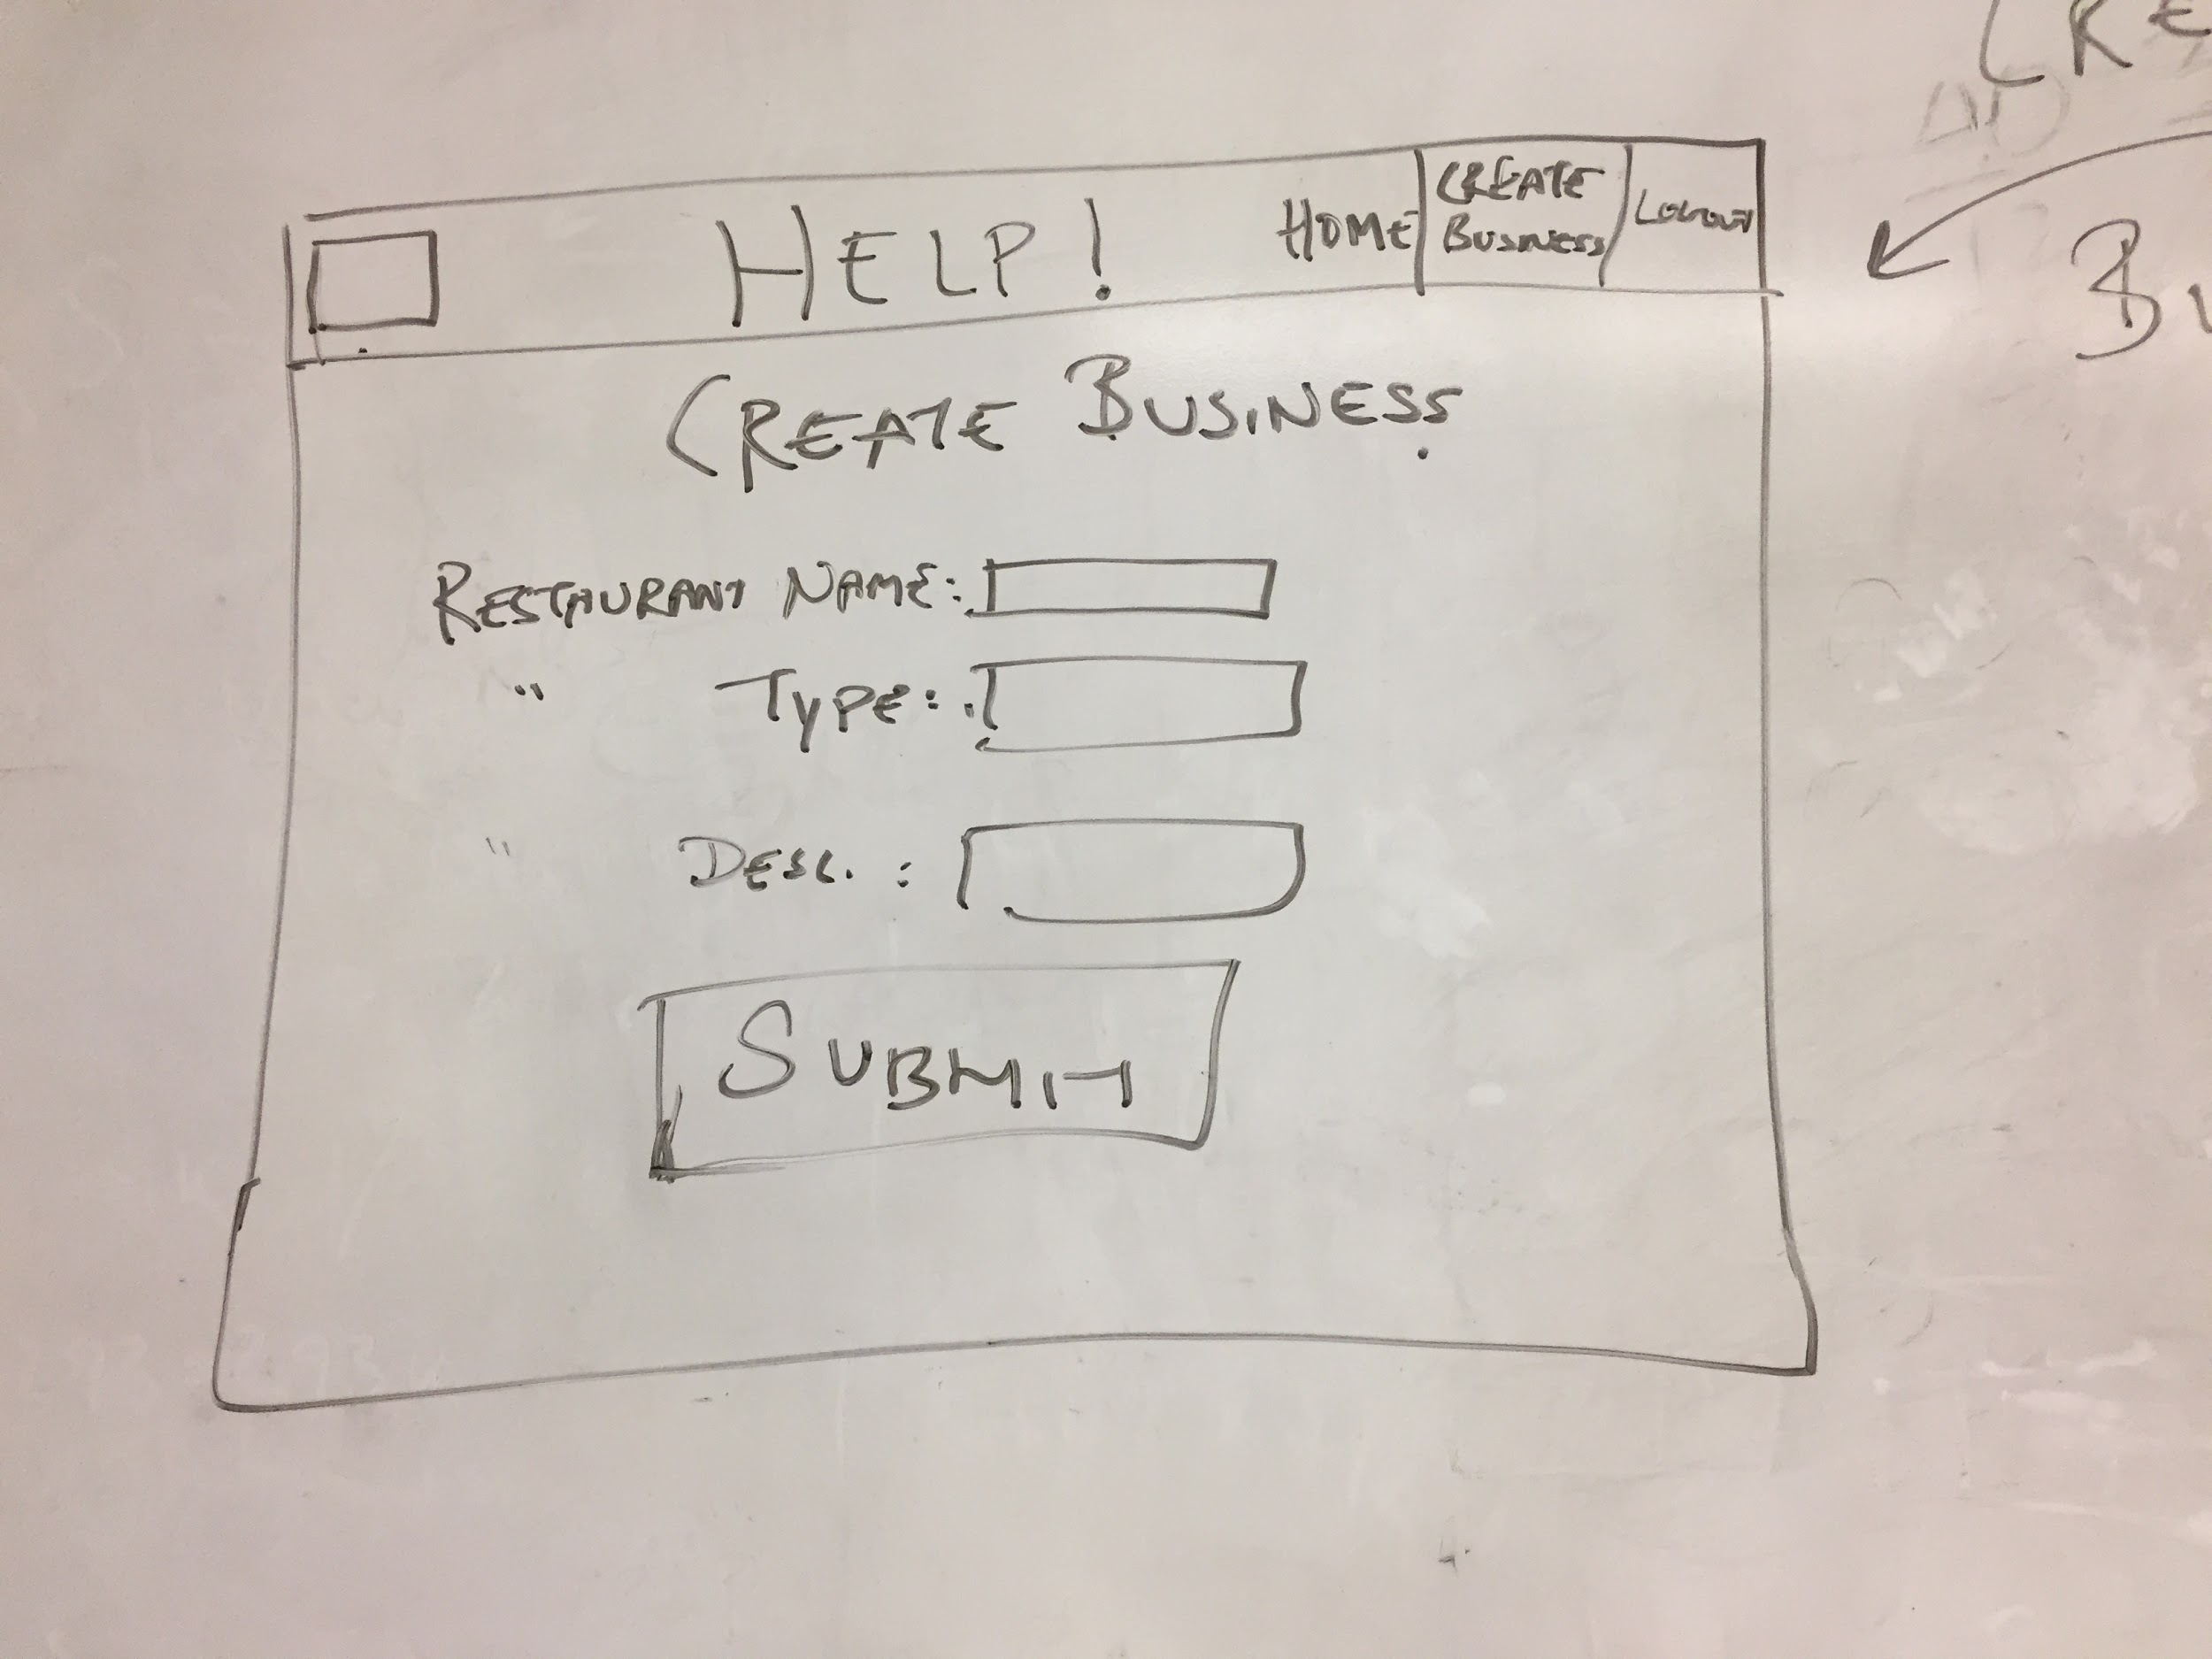 CRE
HELP!
HOME
CREATE
BUSINESS
LOGOUT
BU
CREATE BUSINESS
RESTAURANT NAME:
" TYPE:
" DESC. :
SUBMIT